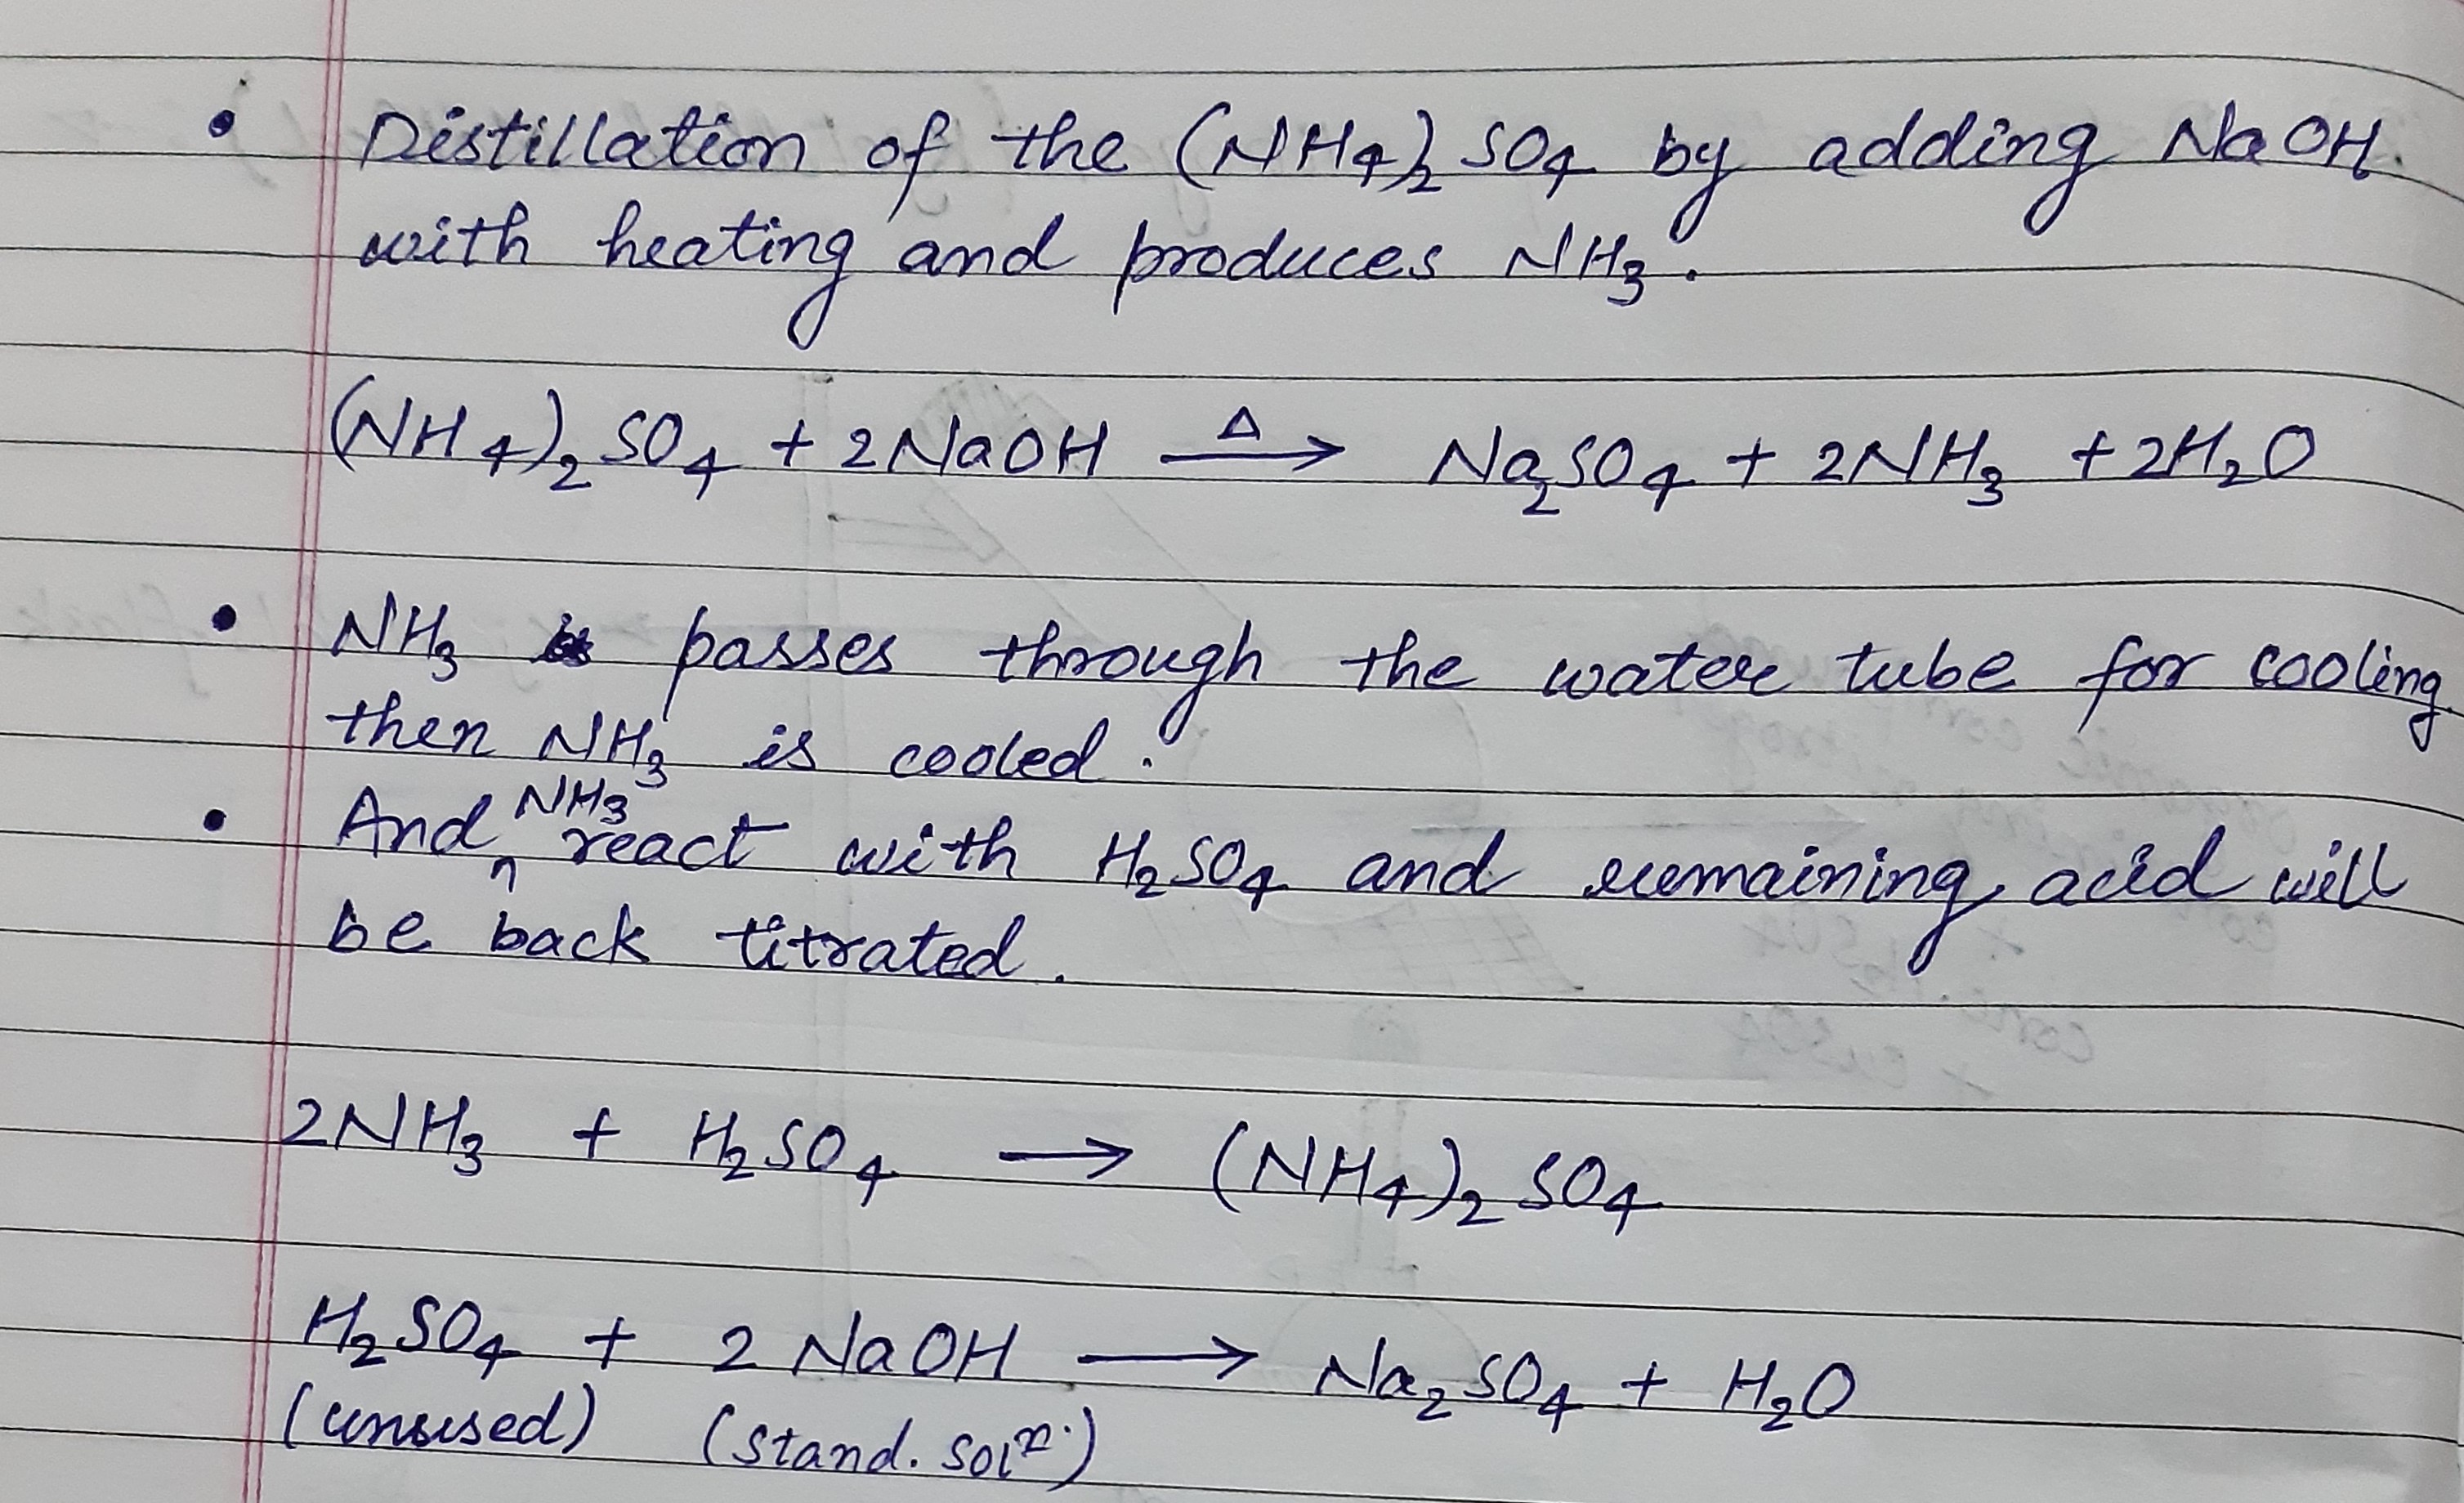 • Distillation of the (NH4)2 SO4 by adding NaOH.
with heating and produces NH3.
(NH4)2 SO4 + 2NaOH —Δ→ Na2SO4 + 2NH3 + 2H2O
• NH3 passes through the water tube for cooling.
then NH3 is cooled.
• And NH3 react with H2SO4 and remaining acid will
be back titrated.
2NH3 + H2SO4 → (NH4)2 SO4
H2SO4 + 2 NaOH → Na2SO4 + H2O
(unused) (stand. solⁿ.)